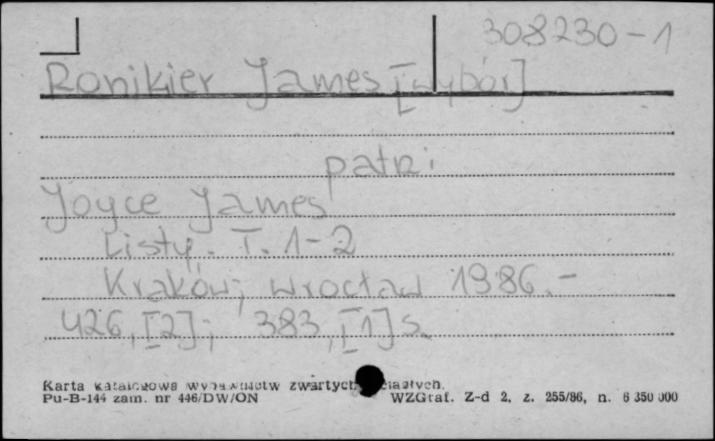 308230-1
Ronikier James [wybór]
patrz:
Joyce James
Listy. T. 1-2
Kraków; Wrocław 1986.-
426,[2]; 383,[1] s.
Karta katalogowa wydawnictw zwartych i ciągłych.
Pu-B-144 zam. nr 446/DW/ON WZGraf. Z-d 2, z. 255/86, n. 6 350 000